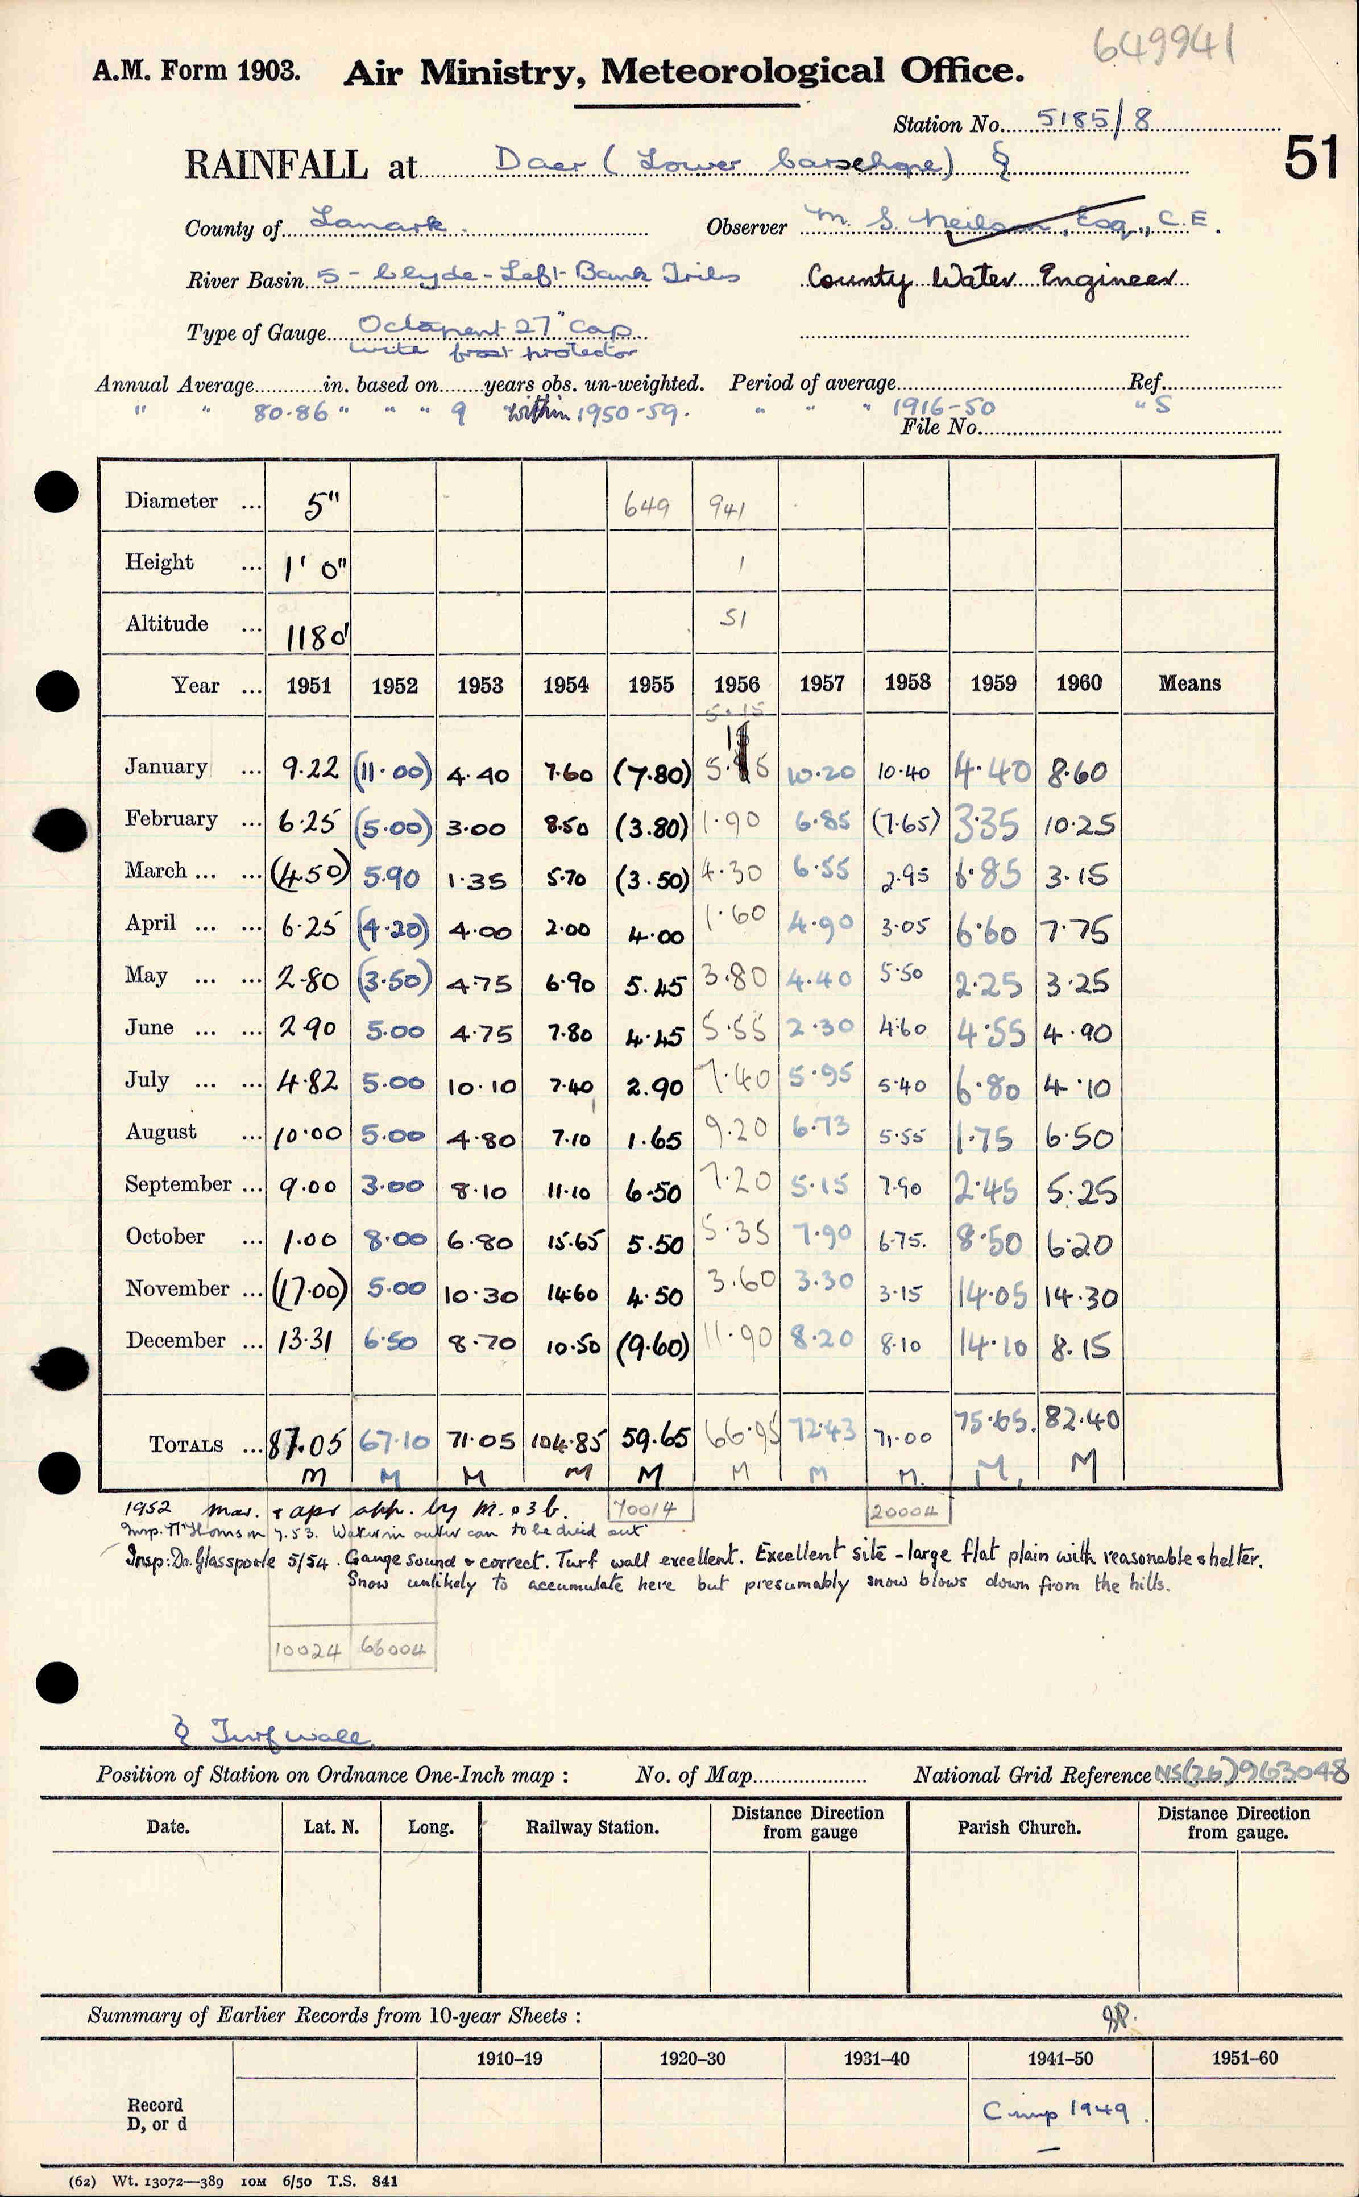 649941
A.M. Form 1903. Air Ministry, Meteorological Office.
Station No. 5185/8
RAINFALL at Daer (Lower Carsehope) § 51
County of Lanark. Observer M. S. Neilson, Esq., C.E.
River Basin 5 - Clyde - Left Bank Tribs County Water Engineer
Type of Gauge Octapent 27" Cap
with frost protector
Annual Average in. based on years obs. un-weighted. Period of average Ref.
" " 80.86 " " " 9 within 1950-59. " " " 1916-50 " S
File No.
Diameter ... 5" 649 941
Height ... 1' 0" 1
Altitude ... 1180' 51
Year ... 1951 1952 1953 1954 1955 1956 1957 1958 1959 1960 Means
5.15
January ... 9.22 (11.00) 4.40 7.60 (7.80) 5.15 10.20 10.40 4.40 8.60
February ... 6.25 (5.00) 3.00 8.50 (3.80) 1.90 6.85 (7.65) 3.35 10.25
March ... ... (4.50) 5.90 1.35 5.70 (3.50) 4.30 6.55 2.95 6.85 3.15
April ... ... 6.25 (4.20) 4.00 2.00 4.00 1.60 4.90 3.05 6.60 7.75
May ... ... 2.80 (3.50) 4.75 6.90 5.45 3.80 4.40 5.50 2.25 3.25
June ... ... 2.90 5.00 4.75 7.80 4.45 5.55 2.30 4.60 4.55 4.90
July ... ... 4.82 5.00 10.10 7.40 2.90 7.40 5.95 5.40 6.80 4.10
August ... 10.00 5.00 4.80 7.10 1.65 9.20 6.73 5.55 1.75 6.50
September ... 9.00 3.00 8.10 11.10 6.50 7.20 5.15 7.90 2.45 5.25
October ... 1.00 8.00 6.80 15.65 5.50 5.35 7.90 6.75. 8.50 6.20
November ... (17.00) 5.00 10.30 14.60 4.50 3.60 3.30 3.15 14.05 14.30
December ... 13.31 6.50 8.70 10.50 (9.60) 11.90 8.20 8.10 14.10 8.15
TOTALS ... 87.05 67.10 71.05 104.85 59.65 66.95 72.43 71.00 75.65. 82.40
M M M M M M M M. M. M
1952 Mar. & Apr app. by M.O3b. 70014 20004
Insp. 7.53. Water in outer can to be dried out
Insp: Dr. Glasspoole 5/54. Gauge sound & correct. Turf wall excellent. Excellent site - large flat plain with reasonable shelter.
Snow unlikely to accumulate here but presumably snow blows down from the hills.
10024 66004
§ Turf wall
Position of Station on Ordnance One-Inch map : No. of Map National Grid Reference NS(26)963048
Date. Lat. N. Long. Railway Station. Distance from gauge Direction Parish Church. Distance from gauge. Direction
Summary of Earlier Records from 10-year Sheets :
1910–19 1920–30 1931–40 1941–50 1951–60
Record
D, or d
1949
(62) Wt. 13072—389 10M 6/50 T.S. 841